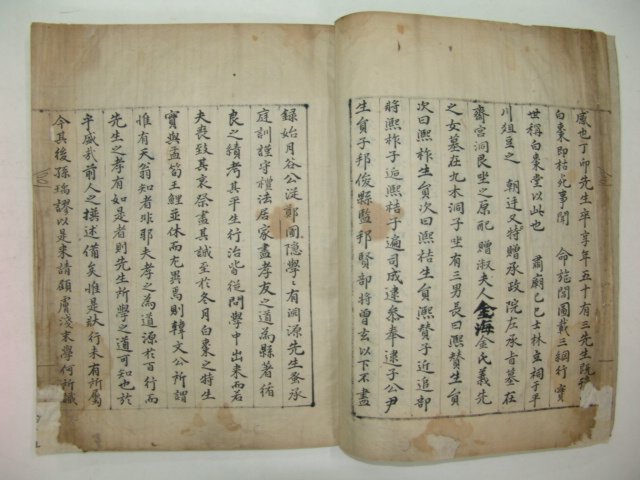 感也丁卯先生卒享年五十有三先生旣歿
白棗卽枯死事聞　命旌閭圖載三綱行實
世稱白棗堂以此也　肅廟乙巳士林立祠于平
川俎豆之　朝廷又特贈承政院左承旨墓在
齋宮洞艮坐之原配贈淑夫人金海金氏義先
之女墓在九木洞子坐有三男長曰熙贊生負
次曰熙柞生負次曰熙枯生負熙贊子近追部
將熙柞子迤熙桔子遍司成逵參奉逮子公尹
生負子邦俊縣監邦賢部將曾玄以下不盡
錄始月谷公從鄭圃隱學學有淵源先生蚤承
庭訓謹守禮法居家盡孝友之道為縣著循
良之績考其平生行治皆從問學中出來而若
夫喪致其哀祭盡其誠至於冬月白棗之特生
實與孟筍王鯉並休而尤異焉則韓文公所謂
惟有天翁知者非耶夫孝之為道源於百行而
先生之孝有如是者則先生所學之道可知也於
乎盛哉前人之撰述備矣惟是狀行未有所屬
今其後孫瑞謬以是來請顧膚淺末學何所識